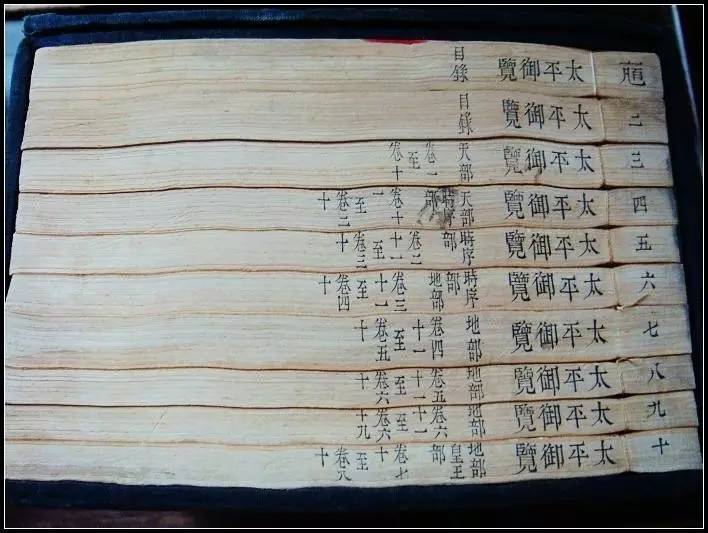 太平御覽 目錄
二 太平御覽 目錄
三 太平御覽 天部 卷一至卷十
四 太平御覽 天部時序部 卷十一至卷二十
五 太平御覽 時序部 卷二十一至卷三十
六 太平御覽 時序部地部 卷三十一至卷四十
七 太平御覽 地部 卷四十一至卷五十
八 太平御覽 地部 卷五十一至卷六十
九 太平御覽 地部 卷六十一至卷六十九
十 太平御覽 地部皇王部 卷七十至卷八十